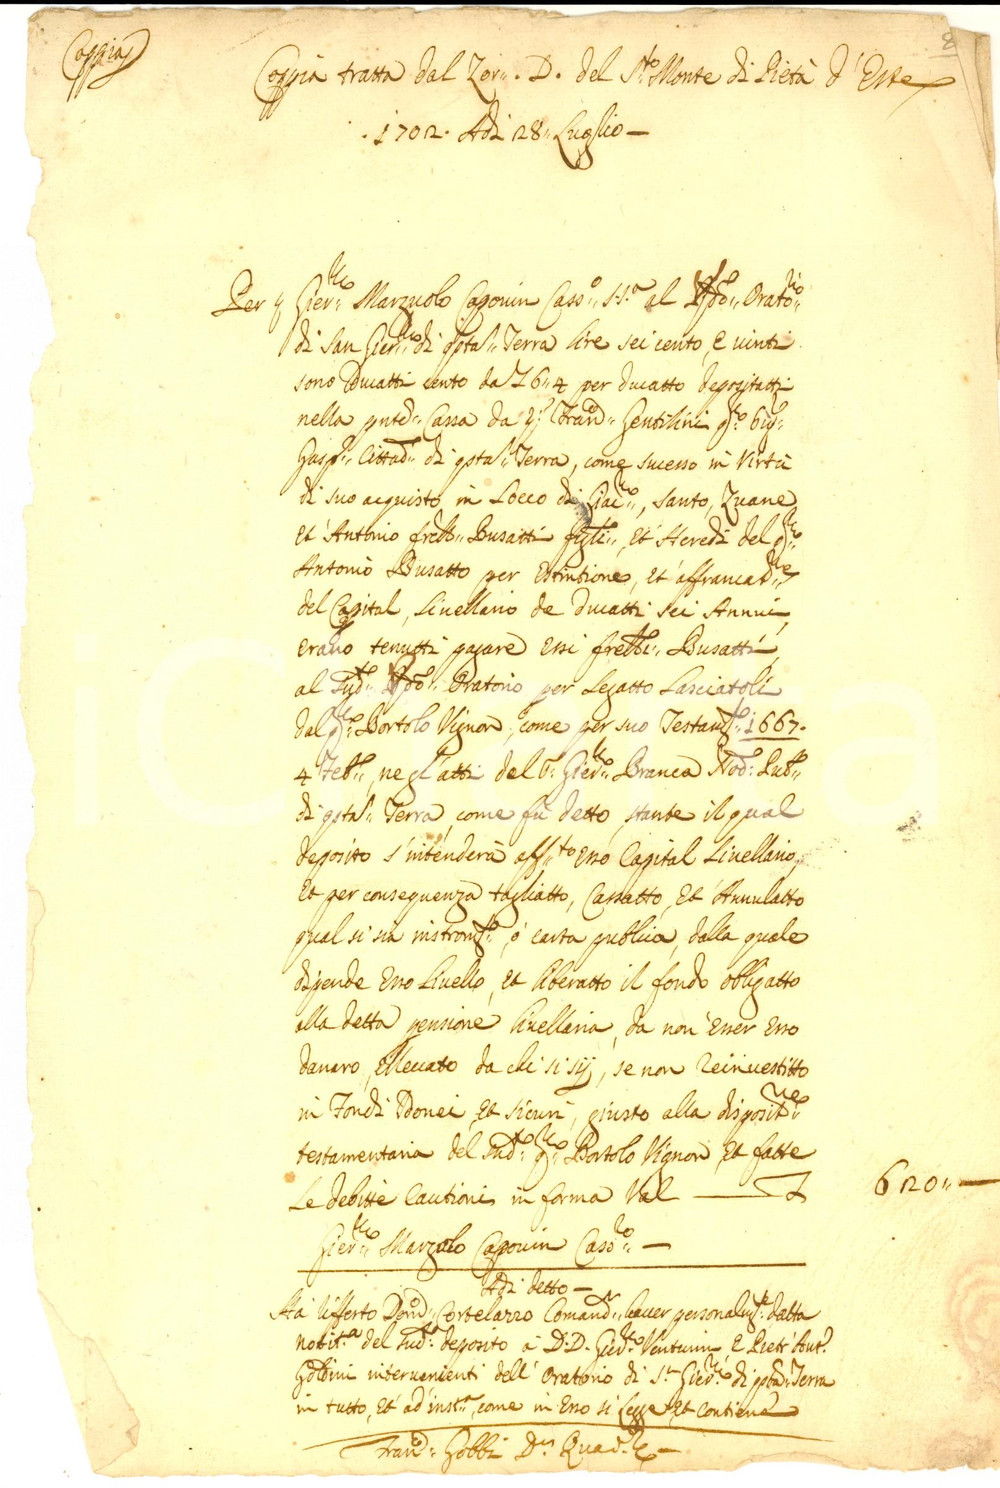 Coppia
Coppia tratta dal Zor:. D. del S:to Monte di Pietà d'Este
.1702. Adi 28: Luglio —
Per q Gier:mo Marzuolo Capouin Cass:o al Orato:rio
di San Gier:mo di q'sta Terra lire sei cento, e uinti
sono Ducatti cento da L 6:4 per ducatto depositatti
nella pnte Cassa da Fran:co Gentilini q:m
Gasp:o Cittad:o di q'sta Terra, come sucesso in Virtù
di suo acquisto in Loco di Giac:mo, Santo, Zuane
et Antonio fretti: Busatti figli:, et Heredi del q:m
Antonio Busatto per estintione, et affrancat:ne
del Capital, Liuellario de Ducatti sei Annui
erano tenutti pagare essi fretti: Busatti
al sud:to Oratorio per Legatto Lasciatoli
dal q:m Bortolo Vignon, come per suo Testam:to 1667.
4 Feb:o, negl'atti del Gier:mo Branca Nod:o Pub:o
di q'sta Terra, come fù detto, stante il qual
deposito s'intenderà aff:to esso Capital Liuellario,
Et per conseguenza tagliatto, Cassatto, et Annulatto
qual si sia instrom:to, ò carta publica, dalla quale
dipende esso Liuello, et liberatto il fondo obligatto
alla detta pensione liuellaria, da non esser esso
danaro, elleuato da chi si sij, se non Reinuestitto
in Fondi Idonei, et sicuri, giusto alla disposit:ne
testamentaria del sud:to q:m Bortolo Vignon, et fatte
Le debitte Cautioni in forma Val ——— L 620:—
Gier:mo Marzuolo Capouin Cass:ro —
Adi detto —
Hà riferto Domi:co Cortelazzo Comand:r hauer personalm:te datta
notit:a del sud:to deposito à D:D. Gier:mo Venturin, e Pietr'Ant:o
Golbini interuenienti dell'Oratorio di S:n Gier:mo di q'sta Terra
in tutto, et ad inst:a, come in esso si legge, et contiene
Fran:co Gobbi